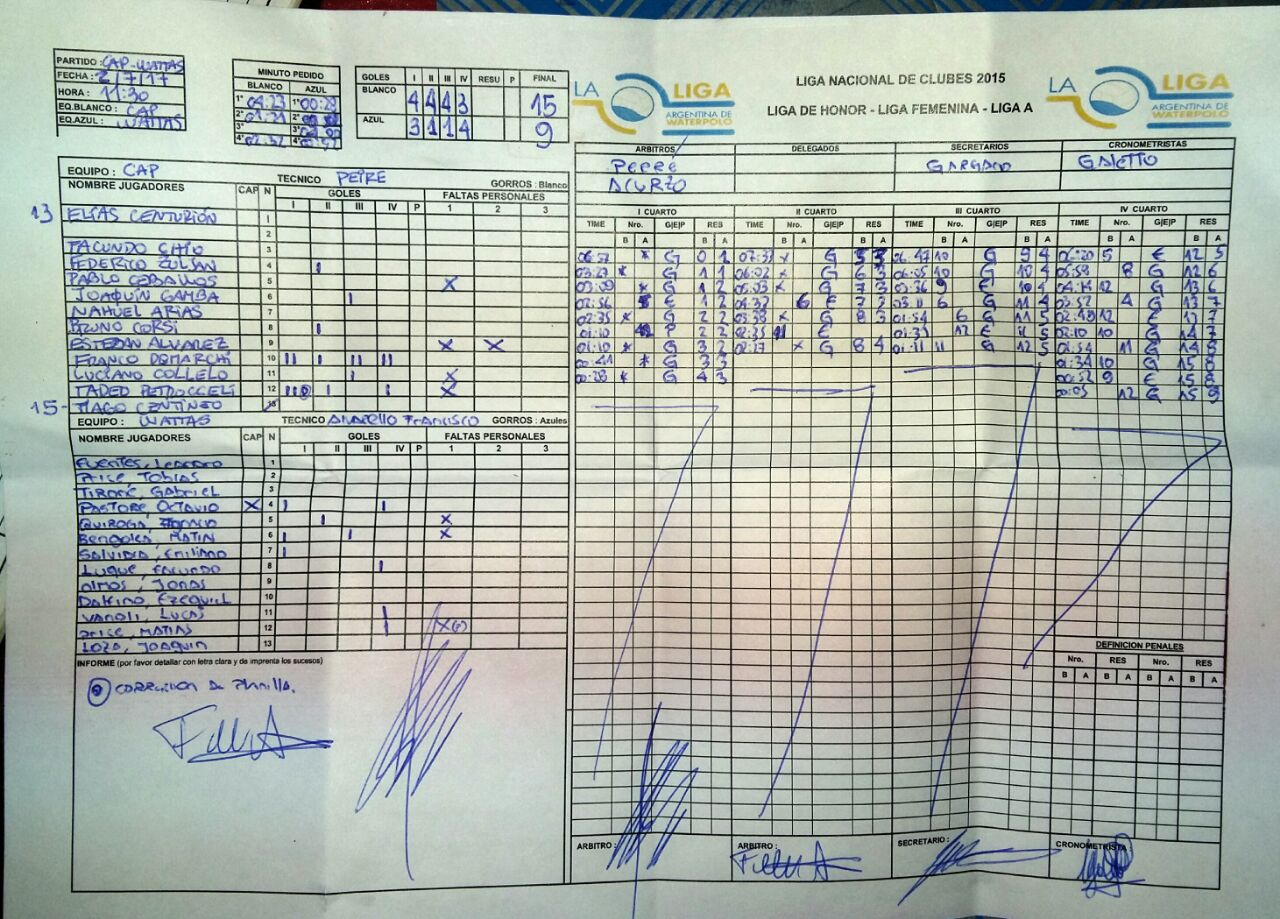 PARTIDO: CAP-WATTAS
FECHA: 2/7/17
HORA: 11:30
EQ.BLANCO: CAP
EQ.AZUL: WATTAS
MINUTO PEDIDO
BLANCO AZUL
1° 04:23 1° 00:28
2° 2°
3° 3°
4° 4°
GOLES I II III IV RESU P FINAL
BLANCO 4 4 4 3 15
AZUL 3 1 1 4 9
LA LIGA
ARGENTINA DE WATERPOLO
LIGA NACIONAL DE CLUBES 2015
LIGA DE HONOR - LIGA FEMENINA - LIGA A
LA LIGA
ARGENTINA DE WATERPOLO
ARBITROS DELEGADOS SECRETARIOS CRONOMETRISTAS
GALETTO
EQUIPO: CAP TECNICO GORROS: Blanco
NOMBRE JUGADORES CAP N GOLES FALTAS PERSONALES
I II III IV P 1 2 3
13 ELIAS CENTURIÓN 1
2
FACUNDO 3
FEDERICO 4 I
PABLO CEBALLOS 5 X
JOAQUÍN GAMBA 6 I
NAHUEL ARIAS 7
BRUNO CORSI 8 I
ESTEBAN ALVAREZ 9 X X
FRANCO DEMARCHI 10 II I II II
LUCIANO COLLELO 11 I X
TADEO 12 I I X
15- TIAGO CENTINEO
EQUIPO: WATTAS TECNICO FRANCISCO GORROS: Azules
NOMBRE JUGADORES CAP N GOLES FALTAS PERSONALES
I II III IV P 1 2 3
FUENTES, 1
PRICE, TOBIAS 2
TIRONE, GABRIEL 3
PASTORE, OCTAVIO X 4 I I
QUIROGA, 5 I X
MATIN 6 I I X
EMILIANO 7 I
LUQUE, FACUNDO 8 I
OLMOS, JONAS 9
EZEQUIEL 10
VANOLI, LUCAS 11
PRICE, MATIAS 12 I X
LOZA, JOAQUIN 13
INFORME (por favor detallar con letra clara y de imprenta los sucesos)
CORRECCION DE PLANILLA.
I CUARTO II CUARTO III CUARTO IV CUARTO
TIME Nro. G|E|P RES TIME Nro. G|E|P RES TIME Nro. G|E|P RES TIME Nro. G|E|P RES
B A B A B A B A B A B A B A B A
G 0 1
03:27 * G 1 1
03:09 * G 1 2
02:56 E 1 2
02:35 * G 2 2
01:10 P 2 2
01:10 * G 3 2
00:41 * G 3 3
00:28 * G 4 3
07:33 × G 5 3
06:02 × G
× G 7 3
04:32 6 E 7 3
03:38 × G 8 3
02:35 11 E
02:17 × G 8 4
06:47 10 G 9 4
06:05 10 G 10 4
05:36 9 E 10 4
03:11 6 G 11 4
01:54 6 G 11 5
01:33 12 E 11 5
01:11 11 G 12 5
06:20 5 E 12 5
05:59 8 G 12 6
04:14 12 G 13 6
03:52 4 G 13 7
12 E 13 7
02:10 10 G 14 7
01:54 11 G 14 8
01:34 10 G 15 8
00:52 9 E 15 8
00:03 12 G 15 9
DEFINICION PENALES
Nro. RES Nro. RES
B A B A B A B A
ARBITRO: ARBITRO: SECRETARIO: CRONOMETRISTA: